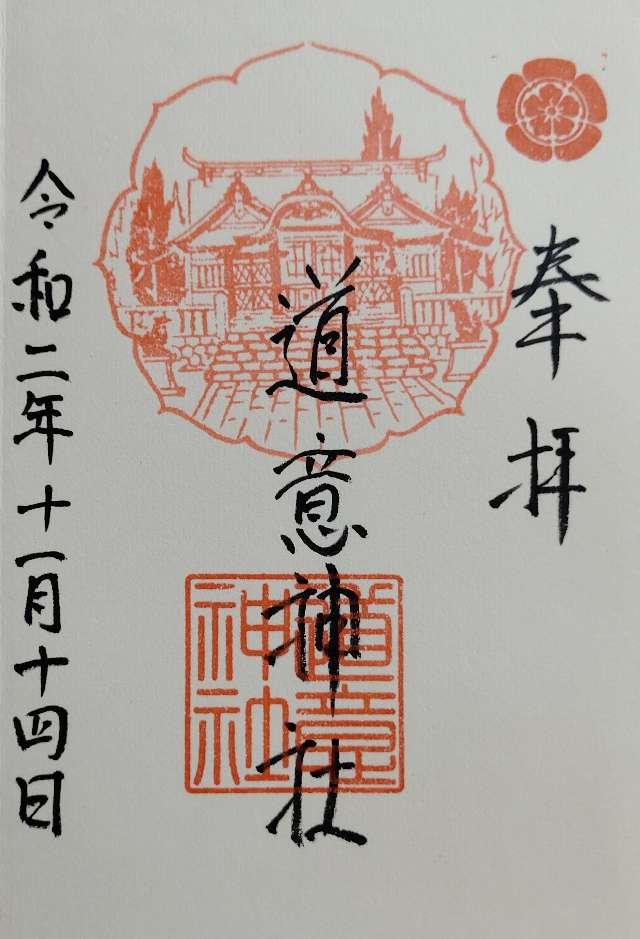 奉拝
道意神社
道意神社
令和二年十一月十四日